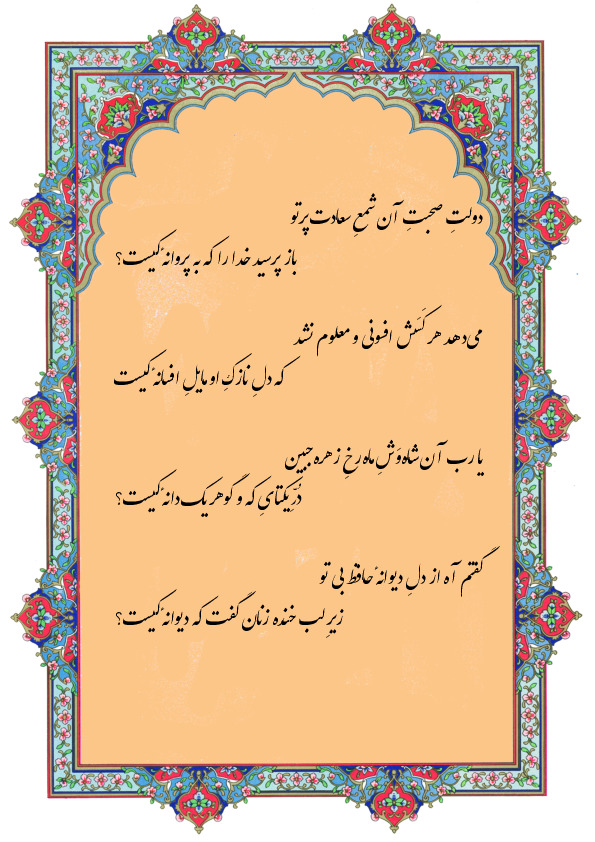 دولتِ صحبتِ آن شمعِ سعادت پرتو
باز پرسید خدا را که به پروانهٔ کیست؟
می‌دهد هر کَسَش افسونی و معلوم نشد
که دلِ نازکِ او مایلِ افسانهٔ کیست
یا رب آن شاه‌وَشِ ماه رخِ زهره جبین
دُرِّ یکتایِ که و گوهر یک دانهٔ کیست؟
گفتم آه از دلِ دیوانهٔ حافظ بی تو
زیرِ لب خنده زنان گفت که دیوانهٔ کیست؟